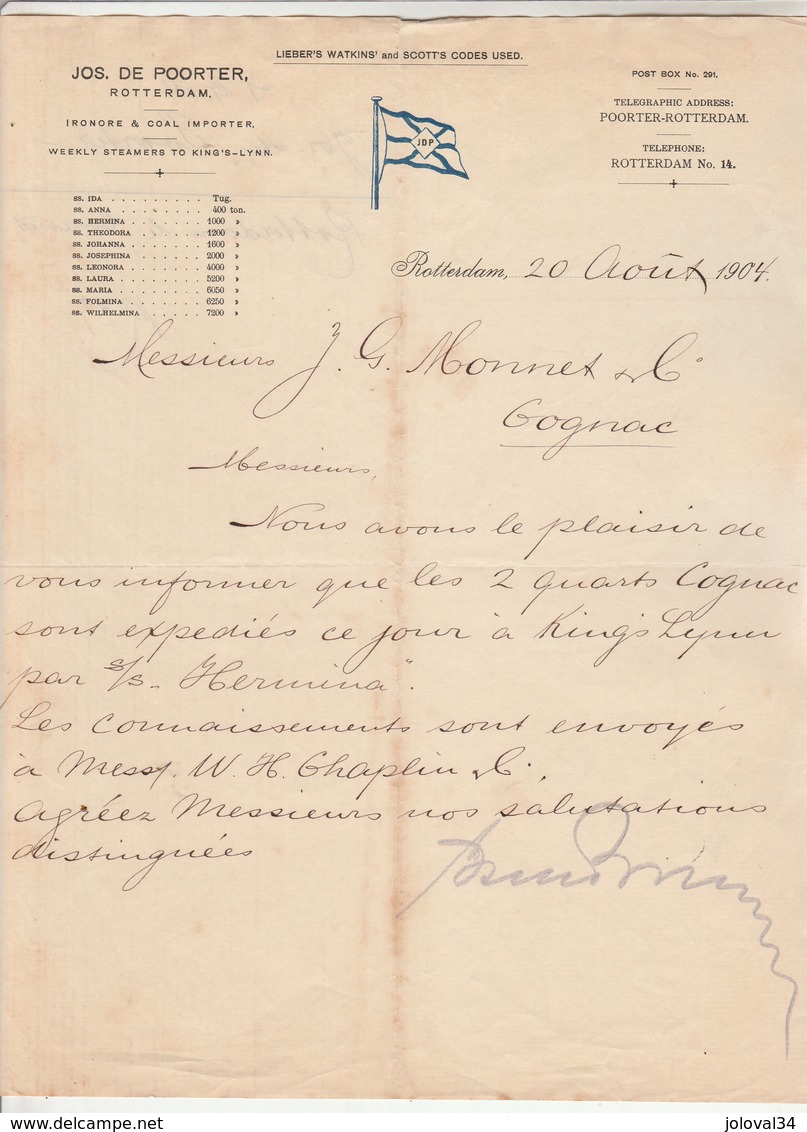 LIEBER'S WATKINS' and SCOTT'S CODES USED.
JOS. DE POORTER,
ROTTERDAM.
IRONORE & COAL IMPORTER.
WEEKLY STEAMERS TO KING'S-LYNN.
JDP
POST BOX No. 291.
TELEGRAPHIC ADDRESS:
POORTER-ROTTERDAM.
TELEPHONE:
ROTTERDAM No. 14.
ss. IDA . . . . . . . . . Tug.
ss. ANNA . . . . . . . . 400 ton.
ss. HERMINA . . . . . . . 1000 »
ss. THEODORA . . . . . . 1200 »
ss. JOHANNA . . . . . . . 1600 »
ss. JOSEPHINA . . . . . . 2000 »
ss. LEONORA . . . . . . . 4000 »
ss. LAURA . . . . . . . . 5200 »
ss. MARIA . . . . . . . . 6050 »
ss. FOLMINA . . . . . . . 6250 »
ss. WILHELMINA . . . . . 7200 »
Rotterdam, 20 Août 1904.
Messieurs J. G. Monnet & Co
Cognac
Messieurs,
Nous avons le plaisir de
vous informer que les 2 quarts Cognac
sont expediés ce jour à King's Lynn
par s/s „Hermina".
Les connaissements sont envoyés
à Mess. W. H. Chaplin & Co.
Agréez Messieurs nos salutations
distinguées
joloval34